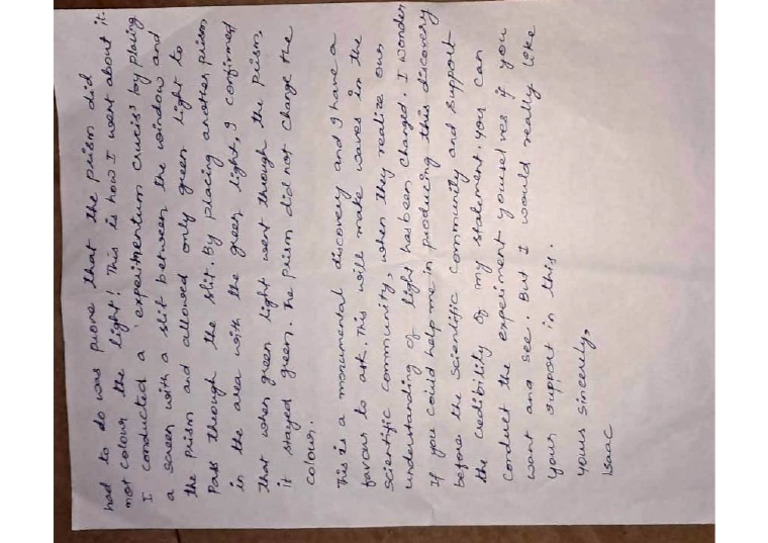 had to do was prove that the prism did
not colour the light! This is how I went about it.
I conducted a 'experimentum crucis' by placing
a screen with a slit between the window and
the prism and allowed only green light to
Pass through the slit. By placing another prism
in the area with the green light, I confirmed
that when green light went through the prism,
it stayed green. The prism did not change the
colour.
This is a monumental discovery and I have a
favour to ask. This will make waves in the
scientific community, when they realize our
understanding of light has been changed. I wonder
if you could help me in producing this discovery
before the scientific community and support
the credibility of my statement. You can
conduct the experiment yourselves if you
want and see. But I would really like
your support in this.
Yours sincerely,
Isaac